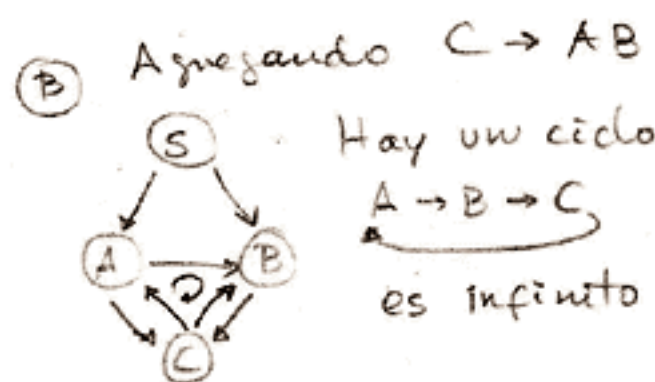 B Agregando C → AB
S
Hay un ciclo
A → B → C
A B
es infinito
C